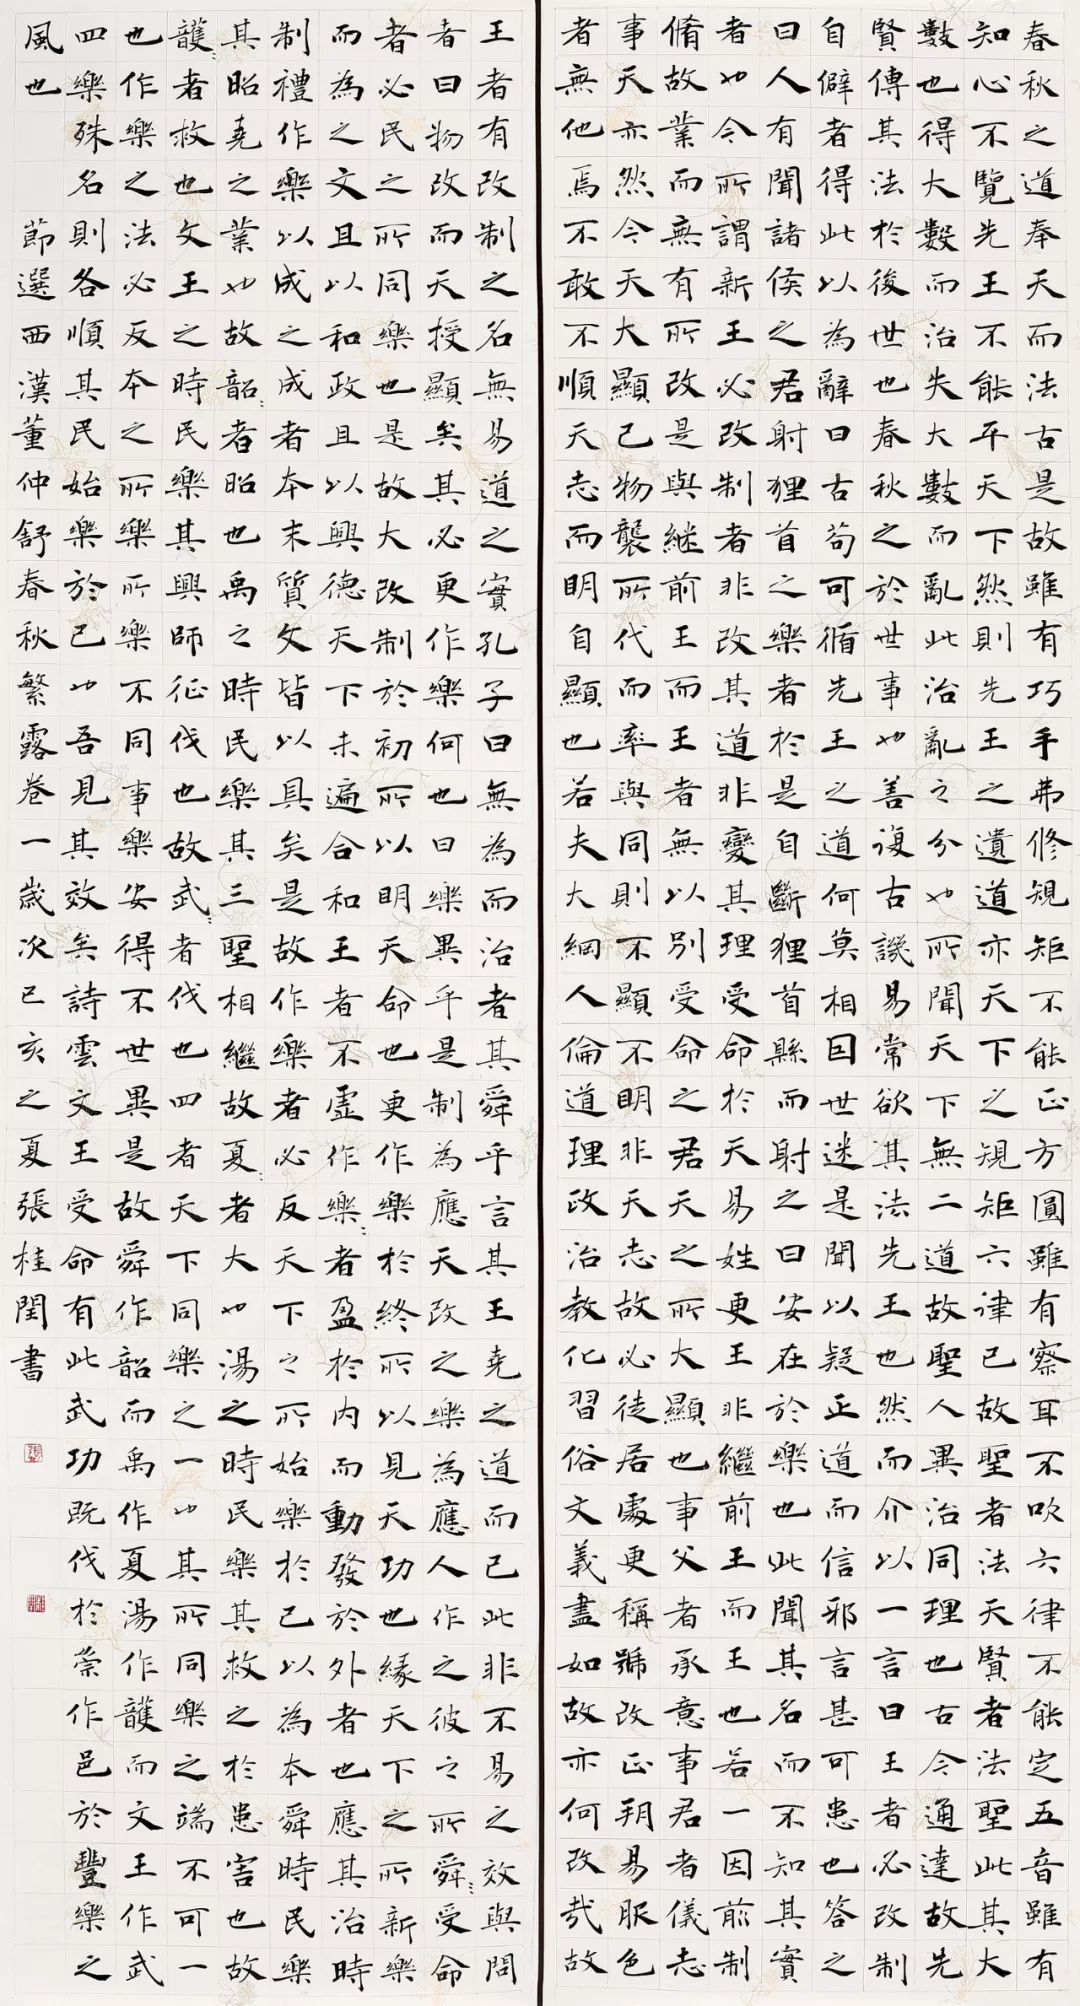 春秋之道奉天而法古是故雖有巧手弗修規矩不能正方圓雖有察耳不吹六律不能定五音雖有
知心不覽先王不能平天下然則先王之遺道亦天下之規矩六律已故聖者法天賢者法聖此其大
數也得大數而治失大數而亂此治亂之分也所聞天下無二道故聖人異治同理也古今通達故先
賢傳其法於後世也春秋之於世事也善復古譏易常欲其法先王也然而介以一言曰王者必改制
自僻者得此以為辭曰古苟可循先王之道何莫相因世迷是聞以疑正道而信邪言甚可患也答之
曰人有聞諸侯之君射狸首之樂者於是自斷狸首縣而射之曰安在於樂也此聞其名而不知其實
者也今所謂新王必改制者非改其道非變其理受命於天易姓更王非繼前王而王也若一因前制
脩故業而無有所改是與继前王而王者無以別受命之君天之所大顯也事父者承意事君者儀志
事天亦然今天大顯已物襲所代而率與同則不顯不明非天志故必徒居處更稱號改正朔易服色
者無他焉不敢不順天志而明自顯也若夫大綱人倫道理政治教化習俗文義盡如故亦何改哉故
王者有改制之名無易道之實孔子曰無為而治者其舜乎言其王堯之道而已此非不易之效與問
者曰物改而天授顯矣其必更作樂何也曰樂異乎是制為應天改之樂為應人作之彼之所舜受命
者必民之所同樂也是故大改制於初所以明天命也更作樂於終所以見天功也緣天下之所新樂
而為之文且以和政且以興德天下未遍合和王者不虛作樂者盈於內而動發於外者也應其治時
制禮作樂以成之成者本末質文皆以具矣是故作樂者必反天下之所始樂於己以為本舜時民樂
其昭堯之業也故韶者昭也禹之時民樂其三聖相繼故夏者大也湯之時民樂其救之於患害也故
護者救也文王之時民樂其興師征伐也故武者伐也四者天下同樂之一也其所同樂之端不可一
也作樂之法必反本之所樂所樂不同事樂安得不世異是故舜作韶而禹作夏湯作護而文王作武
四樂殊名則各順其民始樂於己也吾見其效矣詩雲文王受命有此武功既伐於崇作邑於豐樂之
風也 節選西漢董仲舒春秋繁露卷一歲次己亥之夏張桂閏書